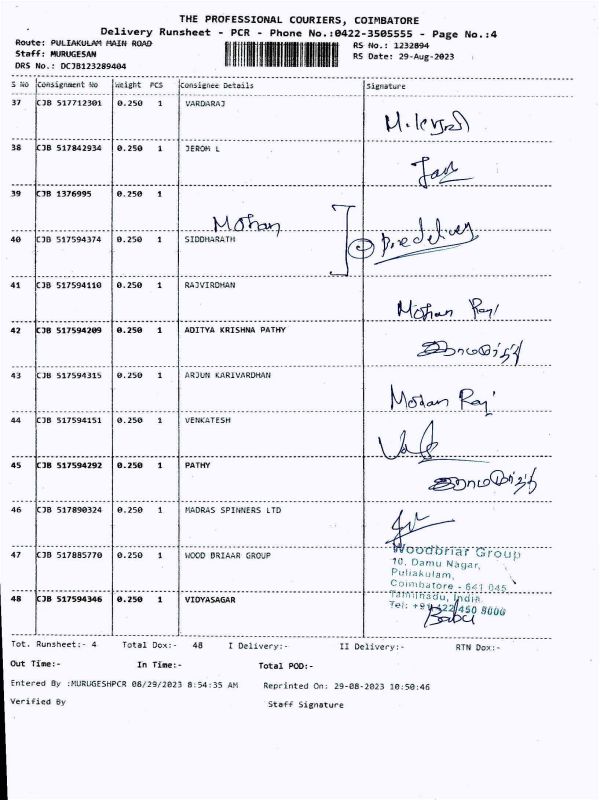 THE PROFESSIONAL COURIERS, COIMBATORE
Delivery Runsheet - PCR - Phone No.:0422-3505555 - Page No.:4
Route: PULIAKULAM MAIN ROAD
RS No.: 1232894
Staff: MURUGESAN
RS Date: 29-Aug-2023
DRS No.: DCJB123289404
S No Consignment No Weight PCS Consignee Details Signature
37 CJB 517712301 0.250 1 VARDARAJ
38 CJB 517842934 0.250 1 JEROM L
39 CJB 1376995 0.250 1
Mohan
40 CJB 517594374 0.250 1 SIDDHARATH
41 CJB 517594110 0.250 1 RAJVIRDHAN
Mohan Raj
42 CJB 517594209 0.250 1 ADITYA KRISHNA PATHY
43 CJB 517594315 0.250 1 ARJUN KARIVARDHAN
Mohan Raj
44 CJB 517594151 0.250 1 VENKATESH
45 CJB 517594292 0.250 1 PATHY
46 CJB 517890324 0.250 1 MADRAS SPINNERS LTD
47 CJB 517885770 0.250 1 WOOD BRIAAR GROUP
Woodbriar Group
10, Damu Nagar,
Puliakulam,
Coimbatore - 641 045
Tamilnadu, India
Tel: +91 422 450 8000
48 CJB 517594346 0.250 1 VIDYASAGAR
Babu
Tot. Runsheet:- 4 Total Dox:- 48 I Delivery:- II Delivery:- RTN Dox:-
Out Time:- In Time:- Total POD:-
Entered By :MURUGESHPCR 08/29/2023 8:54:35 AM Reprinted On: 29-08-2023 10:50:46
Verified By Staff Signature